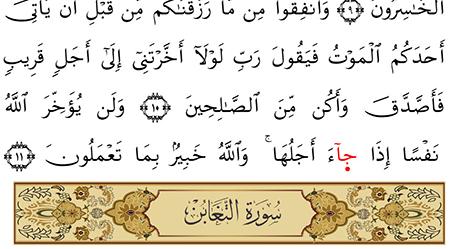 ٱلْخَٰسِرُونَ ۝٩ وَأَنفِقُوا۟ مِن مَّا رَزَقْنَٰكُم مِّن قَبْلِ أَن يَأْتِىَ
أَحَدَكُمُ ٱلْمَوْتُ فَيَقُولَ رَبِّ لَوْلَآ أَخَّرْتَنِىٓ إِلَىٰٓ أَجَلٍ قَرِيبٍ
فَأَصَّدَّقَ وَأَكُن مِّنَ ٱلصَّٰلِحِينَ ۝١٠ وَلَن يُؤَخِّرَ ٱللَّهُ
نَفْسًا إِذَا جَآءَ أَجَلُهَا ۚ وَٱللَّهُ خَبِيرٌۢ بِمَا تَعْمَلُونَ ۝١١
سُورَةُ التَّغَابُنِ